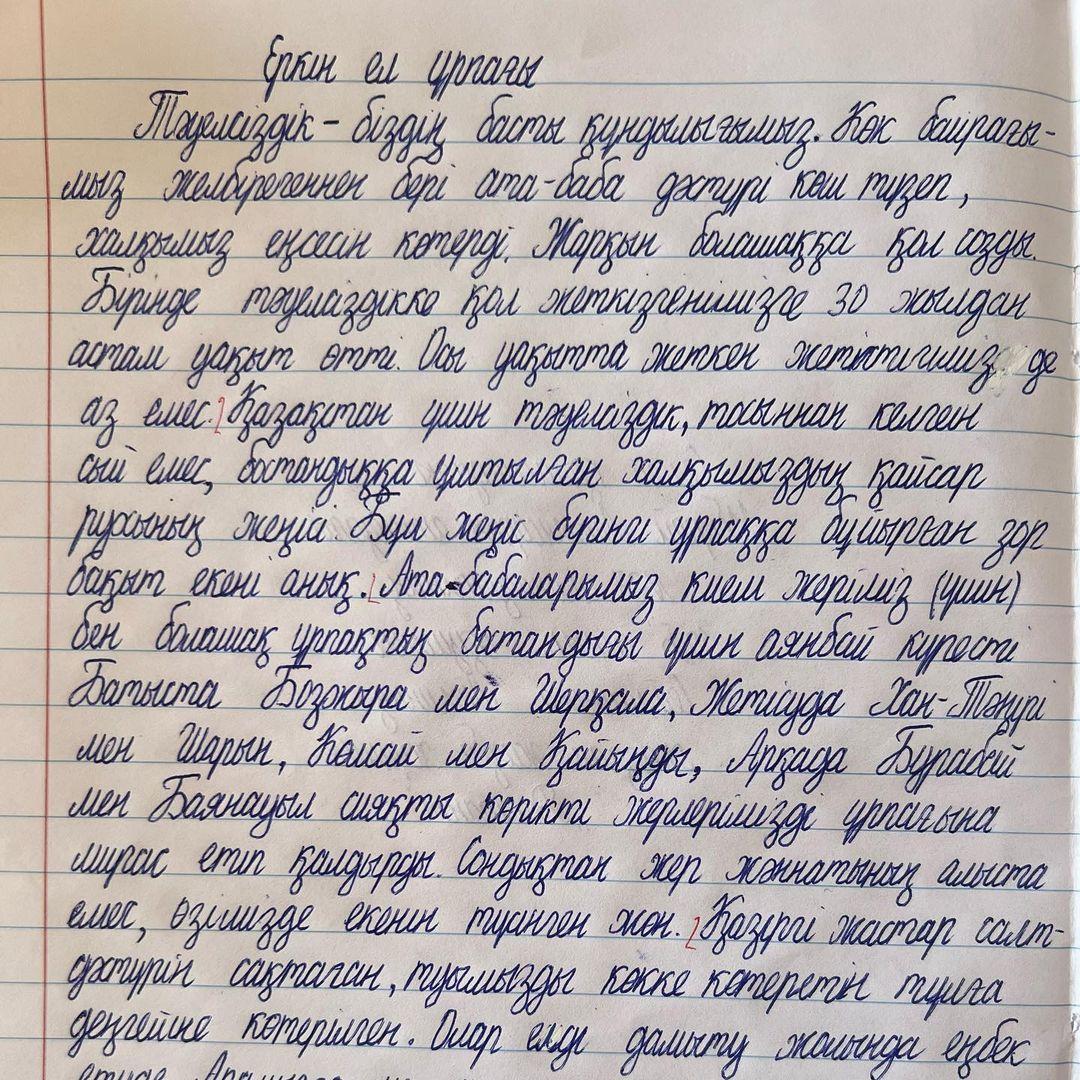 Еркін ел ұрпағы
Тәуелсіздік – біздің басты құндылығымыз. Көк байрағы-
мыз желбірегеннен бері ата-баба дәстүрі көш түзеп,
халқымыз еңсесін көтерді. Жарқын болашаққа қол созды.
Бірінде тәуелсіздікке қол жеткізгенімізге 30 жылдан
астам уақыт өтті. Осы уақытта жеткен жетістігіміз де
аз емес. Қазақстан үшін тәуелсіздік, тосыннан келген
сый емес, бостандыққа ұмтылған халқымыздың қайсар
рухының жеңісі. Бұл жеңіс бірінғі ұрпаққа бұйырған зор
бақыт екені анық. Ата-бабаларымыз кием жеріміз (үшін)
бен болашақ ұрпақтың бостандығы үшін аянбай күресті
Батыста Бозжыра мен Шерқала, Жетісуда Хан-Тәңірі
мен Шарын, Көлсай мен Қайыңды, Арқада Бурабай
мен Баянауыл сияқты көрікті жерлерімізді ұрпағына
мирас етіп қалдырды. Сондықтан жер жәннатының алыста
емес, өзімізде екенін түсінген жөн. Қазіргі жастар салт-
дәстүрін сақтаған, туымызды көкке көтеретін тұлға
деңгейіне көтерілген. Олар елді дамыту жолында еңбек
етуде.